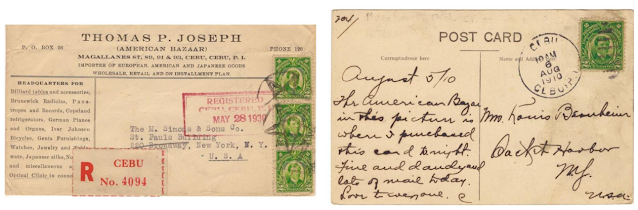 THOMAS P. JOSEPH
(AMERICAN BAZAAR)
P. O. BOX 26
PHONE 120
MAGALLANES ST, 89, 91 & 93, CEBU, CEBU, P. I.
IMPORTER OF EUROPEAN, AMERICAN AND JAPANESE GOODS
WHOLESALE, RETAIL AND ON INSTALLMENT PLAN
HEADQUARTERS FOR
Billiard tables and accessories,
Brunswick Radiolas, Pana-
tropes and Records, Copeland
refrigerators, German Pianos
and Organs, Iver Johnson
Bicycles, Gents Furnishings,
Watches, Jewelry and
ware, Japanese silks,
and miscellaneous
Optical Clinic in
REGISTERED
CEBU, CEBU, P.I.
MAY 28 1930
The M. Simons & Sons Co.
St. Pauls Building
Broadway, New York, N. Y.
U. S. A.
R
CEBU
No. 4094
POST CARD
Correspondence here
Name and Address
CEBU
AM
AUG
1910
CEBU, P.I.
August 5/10
The American Bazar
in this picture is
where I purchased
this card tonight.
Fine and dandy and
lots of mail today.
Love to everyone.
Louis
Sacket Harbor
N.Y.
U.S.A.